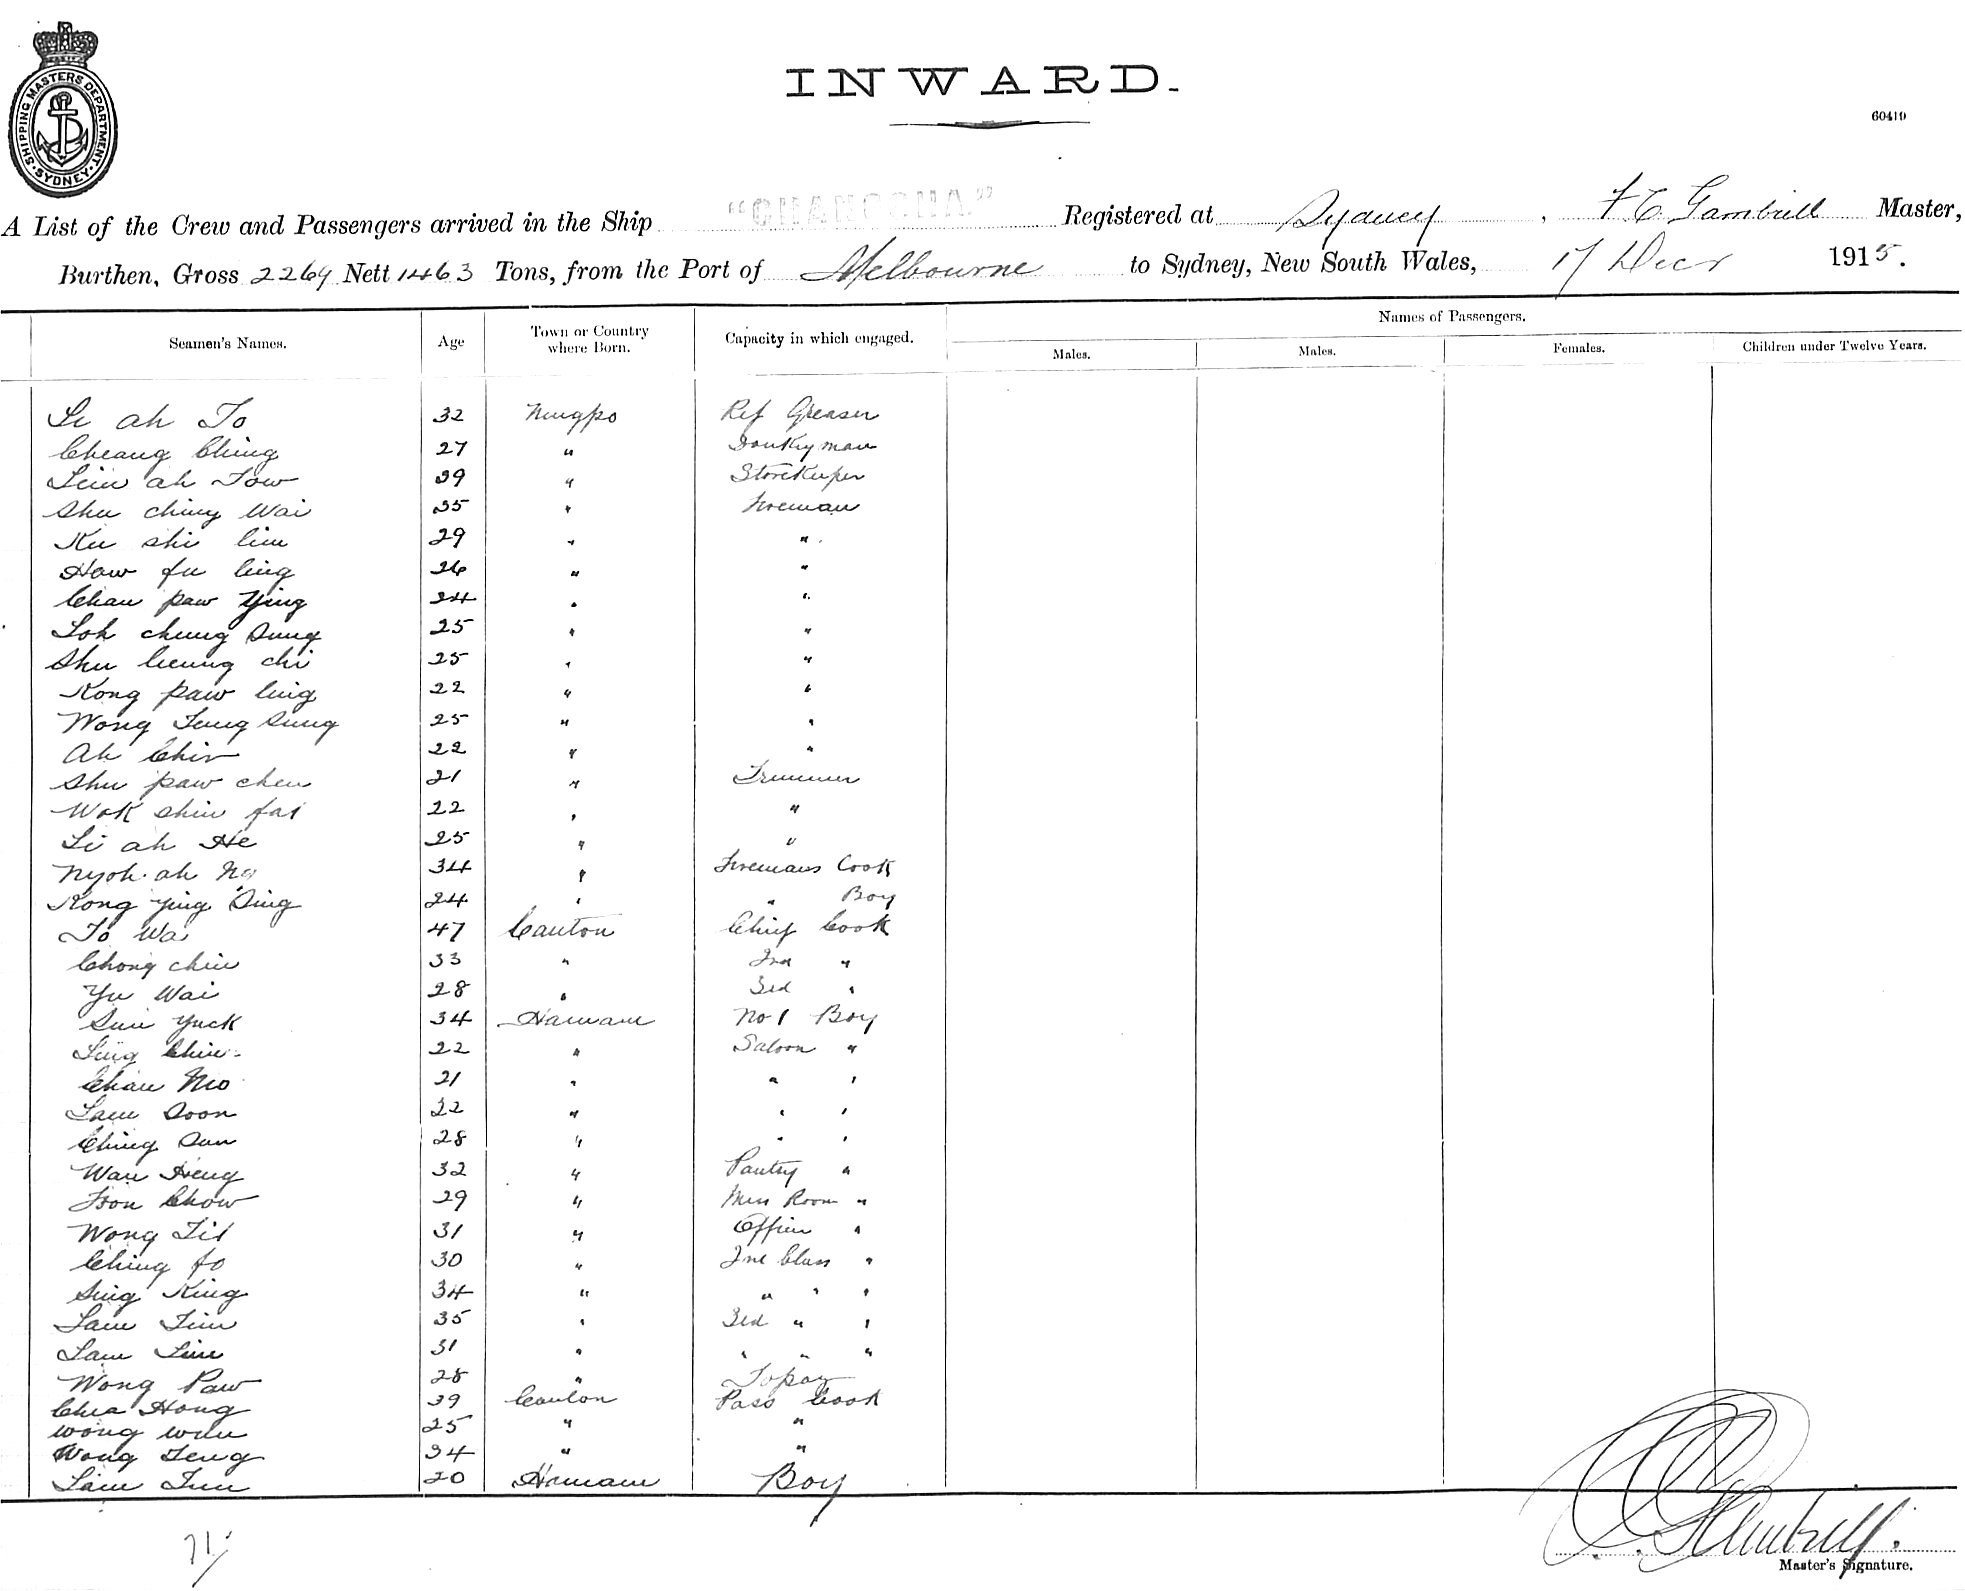 SHIPPING MASTERS DEPARTMENT
SYDNEY
INWARD.
60419
A List of the Crew and Passengers arrived in the Ship "CHANGSHA" Registered at Sydney, F C Gambrill Master,
Burthen, Gross 2269 Nett 1463 Tons, from the Port of Melbourne to Sydney, New South Wales, 17 Decr 1915.
Seamen's Names. Age Town or Country where Born. Capacity in which engaged. Names of Passengers.
Males. Males. Females. Children under Twelve Years.
Li ah To 32 Ningpo Ref Greaser
Cheang Ching 27 " Donkeyman
Lim ah Tow 39 " Storekeeper
Shu ching Wai 35 " Fireman
Ku shi lim 29 " "
How fu ling 26 " "
Chan paw Ying 24 " "
Loh chung Sung 25 " "
Shu leung chi 25 " "
Kong paw ling 22 " "
Wong Teng Sung 25 " "
Ah Chin 22 " "
Shu paw chen 21 " Trimmer
Wok shin fai 22 " "
Li ah He 25 " "
Nyoh ah No 34 " Firemans Cook
Kong ying Sing 24 " " Boy
To Wa 47 Canton Chief Cook
Chong chin 33 " 2nd "
Yu Wai 28 " 3rd "
Sun Yuck 34 Hainam No 1 Boy
Ling Chin 22 " Saloon "
Chan Mo 21 " " "
Lam Soon 22 " " "
Ching Sun 28 " " "
Wan Heng 32 " Pantry "
Foon Chow 29 " Mess Room "
Wong Tit 31 " Officer "
Ching fo 30 " 2nd Class "
Sing King 34 " " " "
Lam Tim 35 " 3rd " "
Lam Lim 31 " " " "
Wong Paw 28 " Topaz
Chea Hong 39 Canton Pass Cook
Wong Wun 25 " "
Wong Teng 34 " "
Lam Tun 20 Hainam Boy
71/
Gambrill.
Master's Signature.